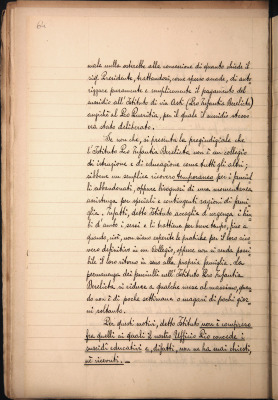 64
nulla osterebbe alla concessione di quanto chiede il
sig. Presidente, trattandosi, come spesso accade, di auto
rizzare puramente e semplicemente il pagamento del
sussidio all'Istituto di via Asti (Pro Infantia Derelicta)
anzichè al Pro Pueritia, per il quale il sussidio stesso
era stato deliberato.
Se non che, si presenta la pregiudiziale che
l'Istituto Pro Infantia Derelicta non è un collegio
di istruzione e di educazione come tutti gli altri,
sibbene un semplice ricovero temporaneo per i fanciul
li abbandonati, oppure bisognosi di una momentanea
assistenza per speciali e contingenti ragioni di fami
glia. Infatti, detto Istituto accoglie d'urgenza i
d'ambo i sessi e li trattiene per breve tempo, fino a
quando, cioè, non siano esperite le pratiche per il loro rico
vero definitivo in un Collegio, oppure non si renda possi
bile il loro ritorno in seno alla propria famiglia. La
permanenza dei fanciulli nell'Istituto Pro Infantia
Derelicta si riduce a qualche mese al massimo, quan
do non è di poche settimane o magari di pochi gior
ni soltanto.
Per questi motivi, detto Istituto non è compreso
fra quelli ai quali il nostro Ufficio Pio concede i
sussidi educativi e, difatti, non ne ha mai chiesti,
nè ricevuti. -